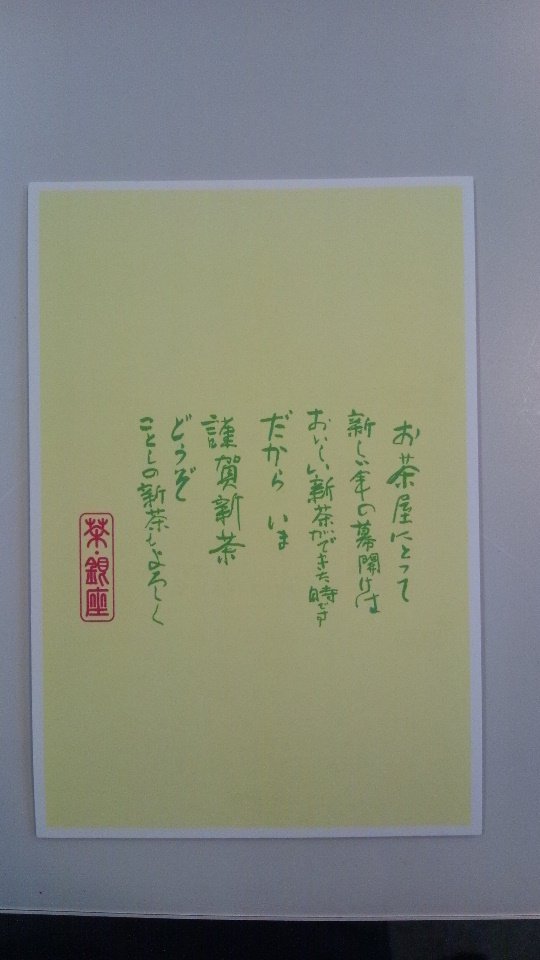 お茶屋にとって
新しい年の幕開けは
おいしい新茶ができた時です
だから いま
謹賀新茶
どうぞ
ことしの新茶もよろしく
茶・銀座